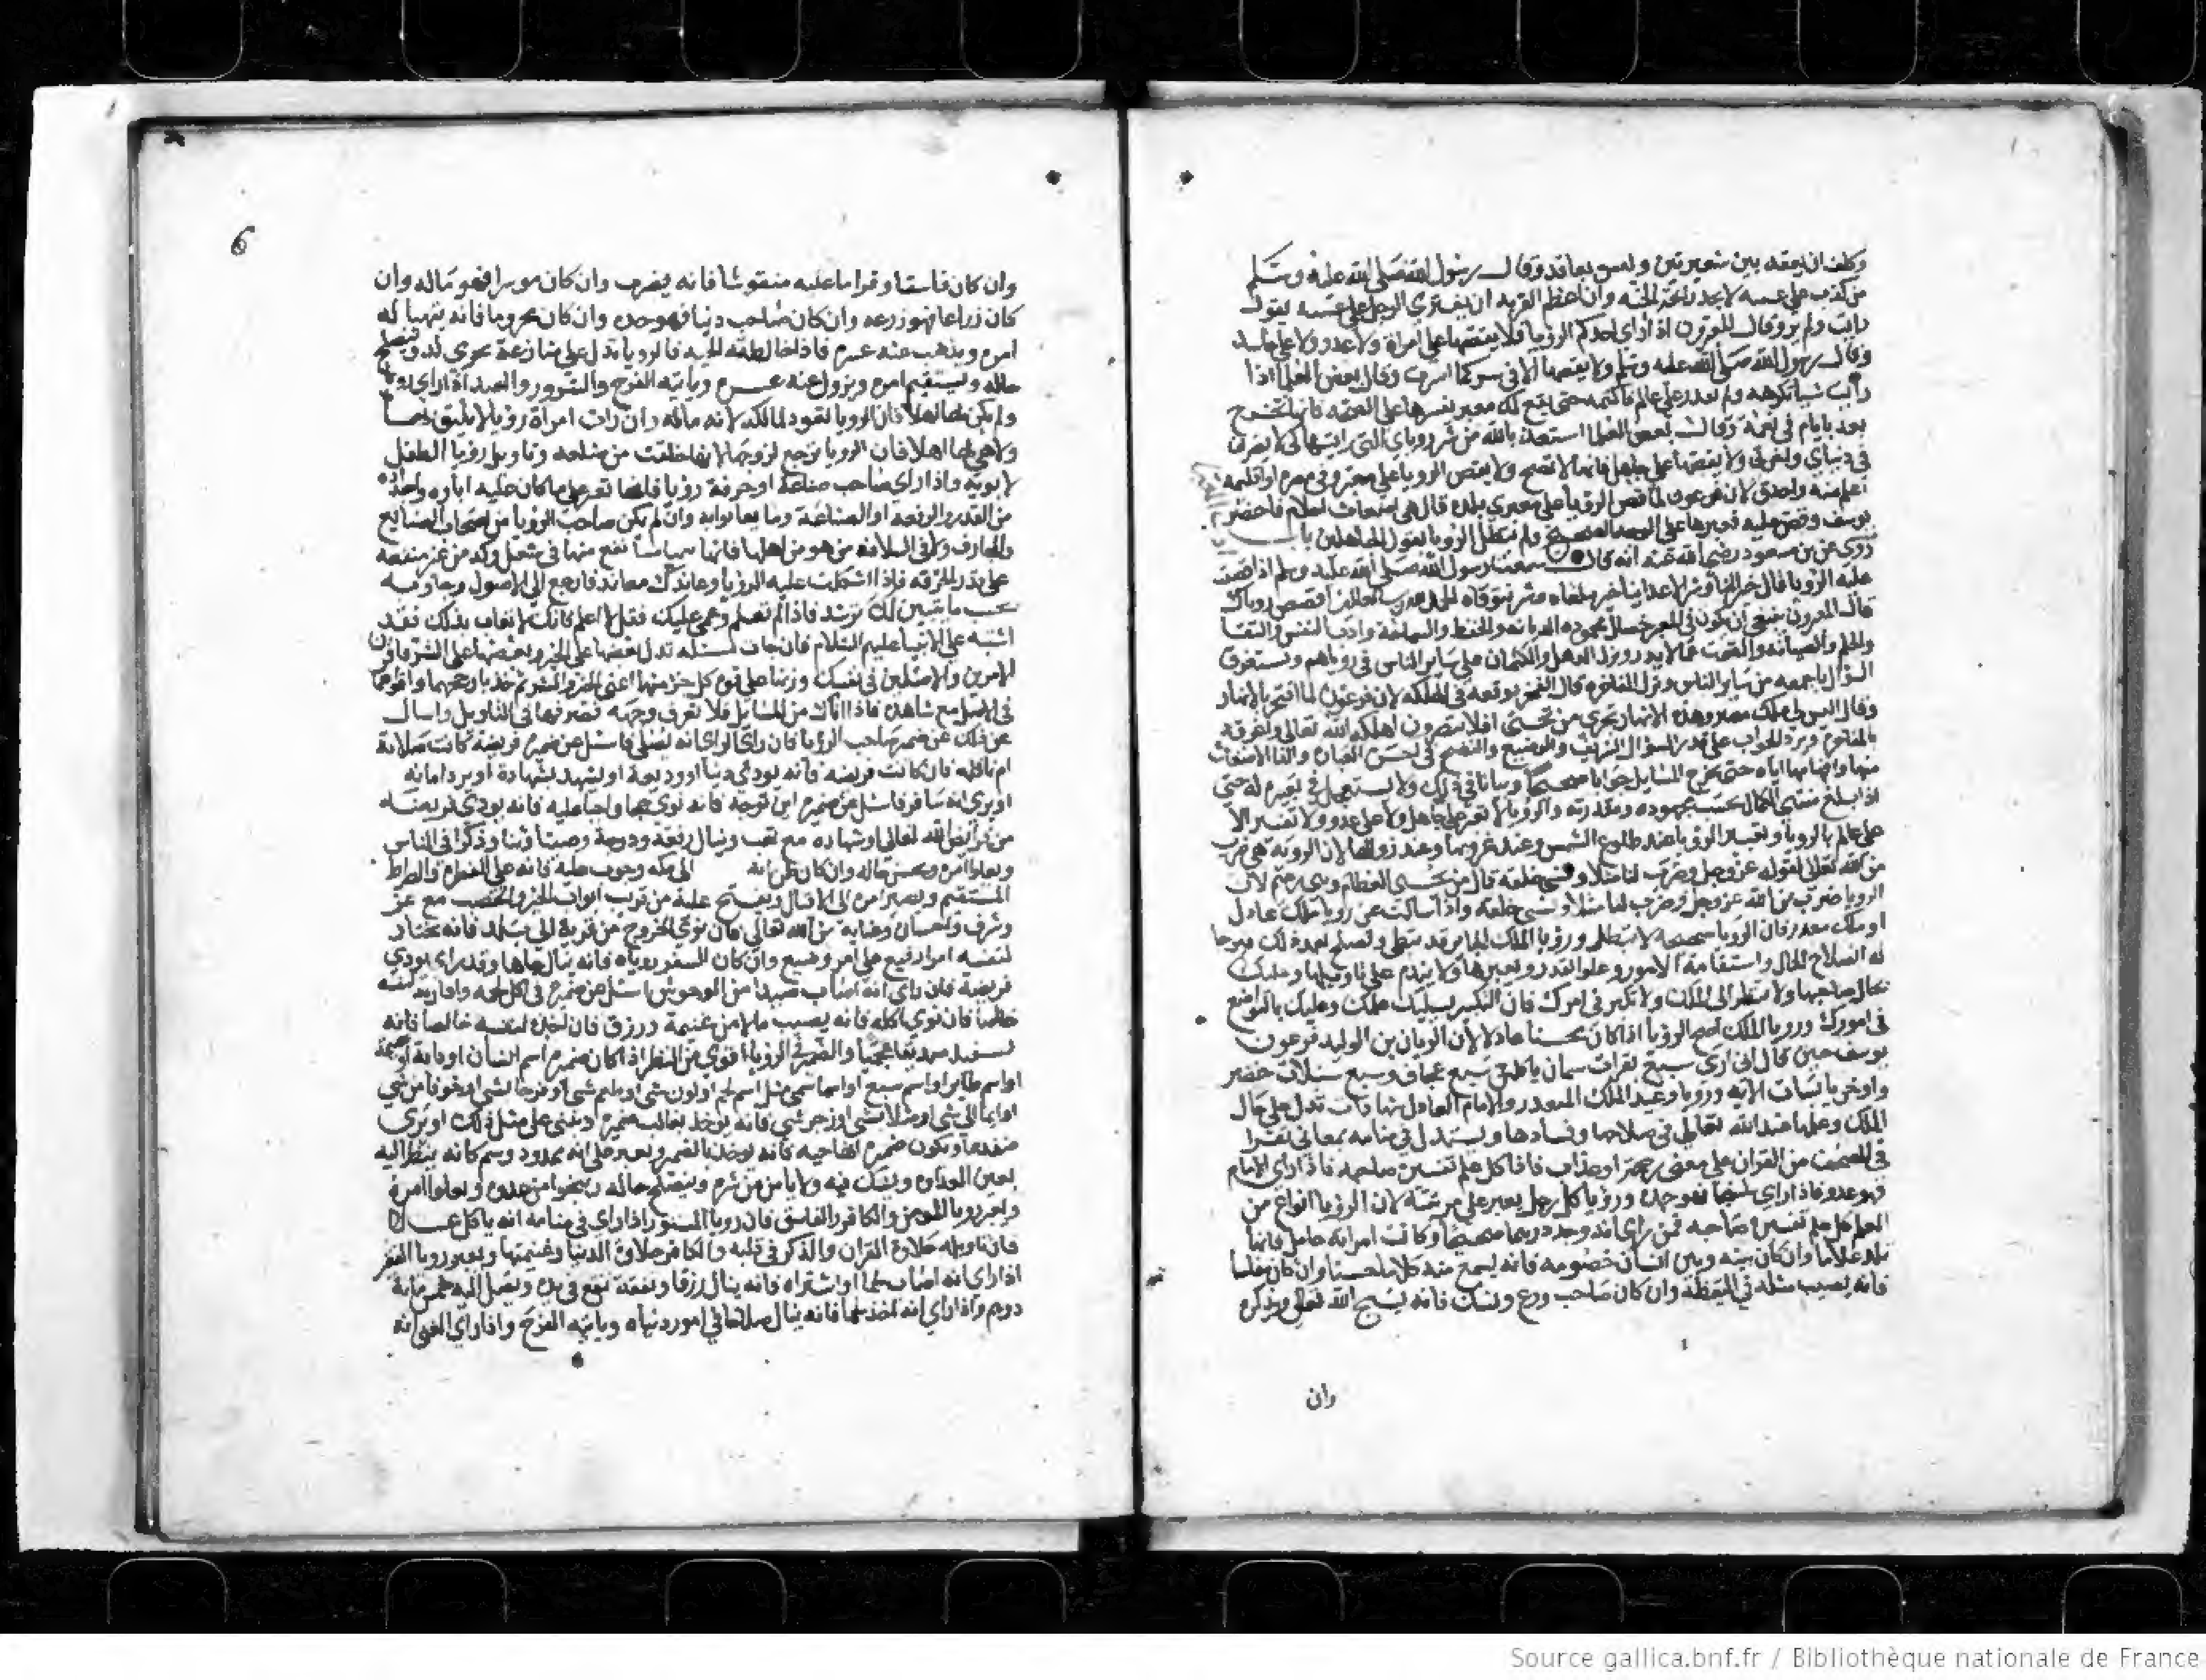 وكلف ان يعقد بين شعيرتين وليس بعاقد وقال رسول الله صلى الله عليه وسلم
من كذب على عينيه لا يجد رائحة الجنة وان اعظم الفرية ان يفتري الرجل على عينيه يقول
رايت ولم ير وقال المعبرون اذا راى احدكم الرؤيا فلا يقصها على امراة ولا عدو ولا على حاسد
وقال رسول الله صلى الله عليه وسلم ولا يقصها الا في سر كما امرت وقال بعض العلما اذا
رايت شيا تكرهه ولم تقدر على عالم فاكتمه حتى يقع لك معبر يفسرها على الصحة فانها تخرج
بعد يا يام في يقظة وقالت بعض العلما استعذ بالله من شر روياي التي رايتها كي لا يضرني
في دنياي ولا يقصها على جاهل فانها لا تصح ولا يقص الرويا على معبر وفي مصره او اقليمه
اعلم منه واحذق لان فرعون لما قص الرؤيا على معبري بلده قال هي اضغاث احلام فاحضر
يوسف وقص عليه فعبرها على الوجه الصحيح ولم تبطل الرؤيا بقول الجاهلين باب
روي عن بن مسعود رضي الله عنه انه قال سمعت رسول الله صلى الله عليه وسلم اذا قصت
عليه الرويا قال خير لنا وشر لاعداينا خير نلقاه وشر نتوقاه الحمد لله رب العالمين اقصص روياك
قال المعبرون ينبغي ان يكون في المعبر خصال محموده الديانه والحفظ والصيانة وادب النفس والتقا
والحلم والصيانه والصمت
السؤال باجمعه من ساير الناس وترك الفاخره فان الفخر يوقعه في الهلكه لان فرعون لما افتخر بالانهار
وقال اليس لي ملك مصر وهذه الانهار تجري من تحتي افلا تبصرون اهلكه الله تعالى واغرقه
منها حتى يخرج المسايل جوابا صحيحا وبيانا في ذلك ولا يستعجل في تعبيره له حتى
اذا بلغ منتهى الكمال بحسب مجهوده ومقدرته والرؤيا لا تعبر على جاهل ولا على عدو ولا تفسر الا
على عالم بالرويا وتفسير الرؤيا عند طلوع الشمس وعند غروبها وعند زوالها لان الروية هي ضرب
من الله تعالى لقوله عز وجل وضرب لنا مثلا ونسي خلقه قال من يحيي العظام وهي رميم لان
الرويا ضرب من الله عز وجل وضرب لنا مثلا ونسي خلقه واذا سالت عن رويا ملك عادل
او ملك مقتدر فان الرويا صحيحة لا تبطل ورؤيا الملك الجاير قد تبطل
له الصلاح الحال واستقامة الامور وعلو القدر وتعبيرها ولا يندم على تاويلها وعليك
بحال صاحبها ولا تنظر الى الملك ولا تكبر في امرك فان التكبر يسليك عملك وعليك بالتواضع
في امورك ورويا الملك اصح الرؤيا اذا كان محسنا عادلا لان الريان بن الوليد فرعون
يوسف حين قال اني ارى سبع بقرات سمان ياكلهن سبع عجاف وسبع سنبلات خضر
واخر يابسات الاية ورويا وعبد الملك المقتدر والامام العادل منها تدل على حال
الملك وعلى ما عند الله تعالى في صلاحها وفسادها ويستدل في منامه بمعاني تقرا
في المصحف من القران على معنى رحمة او عذاب فاذا كل علم تفسير صاحبه فاذا راى الامام
فهو عدو فاذا راى شيخا فهو جده ورؤيا كل رجل يعبر على مرتبته لان الرويا انواع من
العلم كل علم تفسير صاحبه فمن راى انه وجد درهما صحيحا وكانت امراته حامل فانها
تلد غلاما وان كان بينه وبين انسان خصومه فانه يسمع منه كلاما حسنا وان كان مفلسا
فانه يصيب مثله في اليقظة وان كان صاحب ورع ونسك فانه يسبح الله تعالى ويذكره
وان
6
وان كان فاسقا وقرا ما عليه منقوشا فانه يضرب وان كان موسرا فهو ماله وان
كان زراعا فهو زرعه وان كان صاحب دنيا فهو جده وان كان محروما فانه يتهيا له
امره ويذهب عنه عسره فاذا خالطته الحية فالرويا تدل على منازعة تجري له ويصلح
حاله ويستقيم امره ويزول عنه عسره وياتيه الفرج والسرور والعبد اذا راى رويا
ولم يكن لها اهلا فان الرويا تعود لمالكه لانه ماله وان رات امراة رؤيا لا يليق بها
ولا هي لها اهلا فان الرويا ترجع لزوجها لانها خلقت من ضلعه وتاويل رؤيا الطفل
لابويه واذا راى صاحب صناعة او حرفة رؤيا فلها تعبر على ما كان عليه اباوه واجداده
من القدر والرفعة او الصناعة وما يعانوابه وان لم يكن صاحب الرؤيا من اصحاب الصنايع
على قدر المعرفه فاذا اشكلت عليه الرؤيا وعاندك معاند فارجع الى الاصول وجاوبه
بحسب ما يتبين لك ترشد فاذا لم تعلم وعمي عليك فقل لا اعلم فانك لا تعاب بذلك فقد
اشبه على الانبيا عليهم السلام فان جات مسئله تدل بعضها على الخير وبعضها على الشر فاقرن
الامرين والاصلين في نفسك وزنها على قوم كل جزء منها اعني الخير والشر ثم خذ بارجحهما واقواهما
في الاصل مع شاهده فاذا اتاك من المسايل فلا تعرف وجهه فصرفها في التاويل واسال
عن ذلك عن ضمير صاحب الرؤيا كان راى الراى انه يصلي فاسئل عن ضميره فريضة كانت صلاته
ام نافله فان كانت فريضه فانه يودي دينا او وديعة او يشهد بشهادة او يرد امانه
او يرى انه سافر فاسئل عن ضميره اين توجه فانه نوى حجا واجبا عليه فانه يودي فريضه
من فرايض الله تعالى او شهاده مع تعب وينال رفعة ودرجة وصيتا وثنا وذكرا في الناس
ويعلوا امره ويحسن حاله وان كان ظن انه الى مكه وجوب عليه فانه على الفطرة والصراط
المستقيم ويصير امره الى الاقبال ويفتح عليه من قريب ابواب الخير والخصب مع عز
وشرف واحسان وعنايه من الله تعالى فان نوى الخروج من قرية الى بلد فانه يختار
لنفسه امرا رفيع على امر وضيع وان كان السفر روياه فانه ينال جاها وقدرا او يودي
فريضة فان راى انه اصاب صيدا من الوحوش فاسئل عن ضميره في اكل لحمه وافاربته لنفسه
خالصا فان نوى اكله فانه يصيب مالا من غنيمة ورزق فان اخذه لنفسه خالصا فانه
يستفيد صديقا عجميا والضمير في الرؤيا اقوى من النظر اذا كان ضميره اسم انسان او دابة او بقعة
او اسم طايرا او اسم سبع او اسما سمى مثل اسم لحم او لون شي او طعم شي او فرحا لشي او خوفا من شي
او ايما الى شي او مثلا لشي او زجر شي فانه يوخذ بغالب ضميره وبنى على مثل ذلك او يرى
ضفدعا ويكون ضميره انها حيه فانه يوخذ بالضمير ويعبر على انه عدو وسم كانه ينظر اليه
بعين العداوه وينسك فيه ولا يامن من شره ويصلح حاله وينجوا من عدوه ويعلوا امره
واعبر رويا المومن والكافر والفاسق فان رويا المستور اذا راى في منامه انه ياكل عسلا
فان تاويله حلاوة القران والذكر في قلبه والكافر حلاوة الدنيا وغنيمتها وتعبير رويا الفقير
اذا راى انه اصاب لحما او اشتراه فانه ينال رزقا ونفقة تقع في يده ويصل اليه خمس ماية
درهم واذا راى انه اخذ لحما فانه ينال صلاحا في امور دنياه وياتيه الفرج واذا راى الغني انه
Source gallica.bnf.fr / Bibliothèque nationale de France